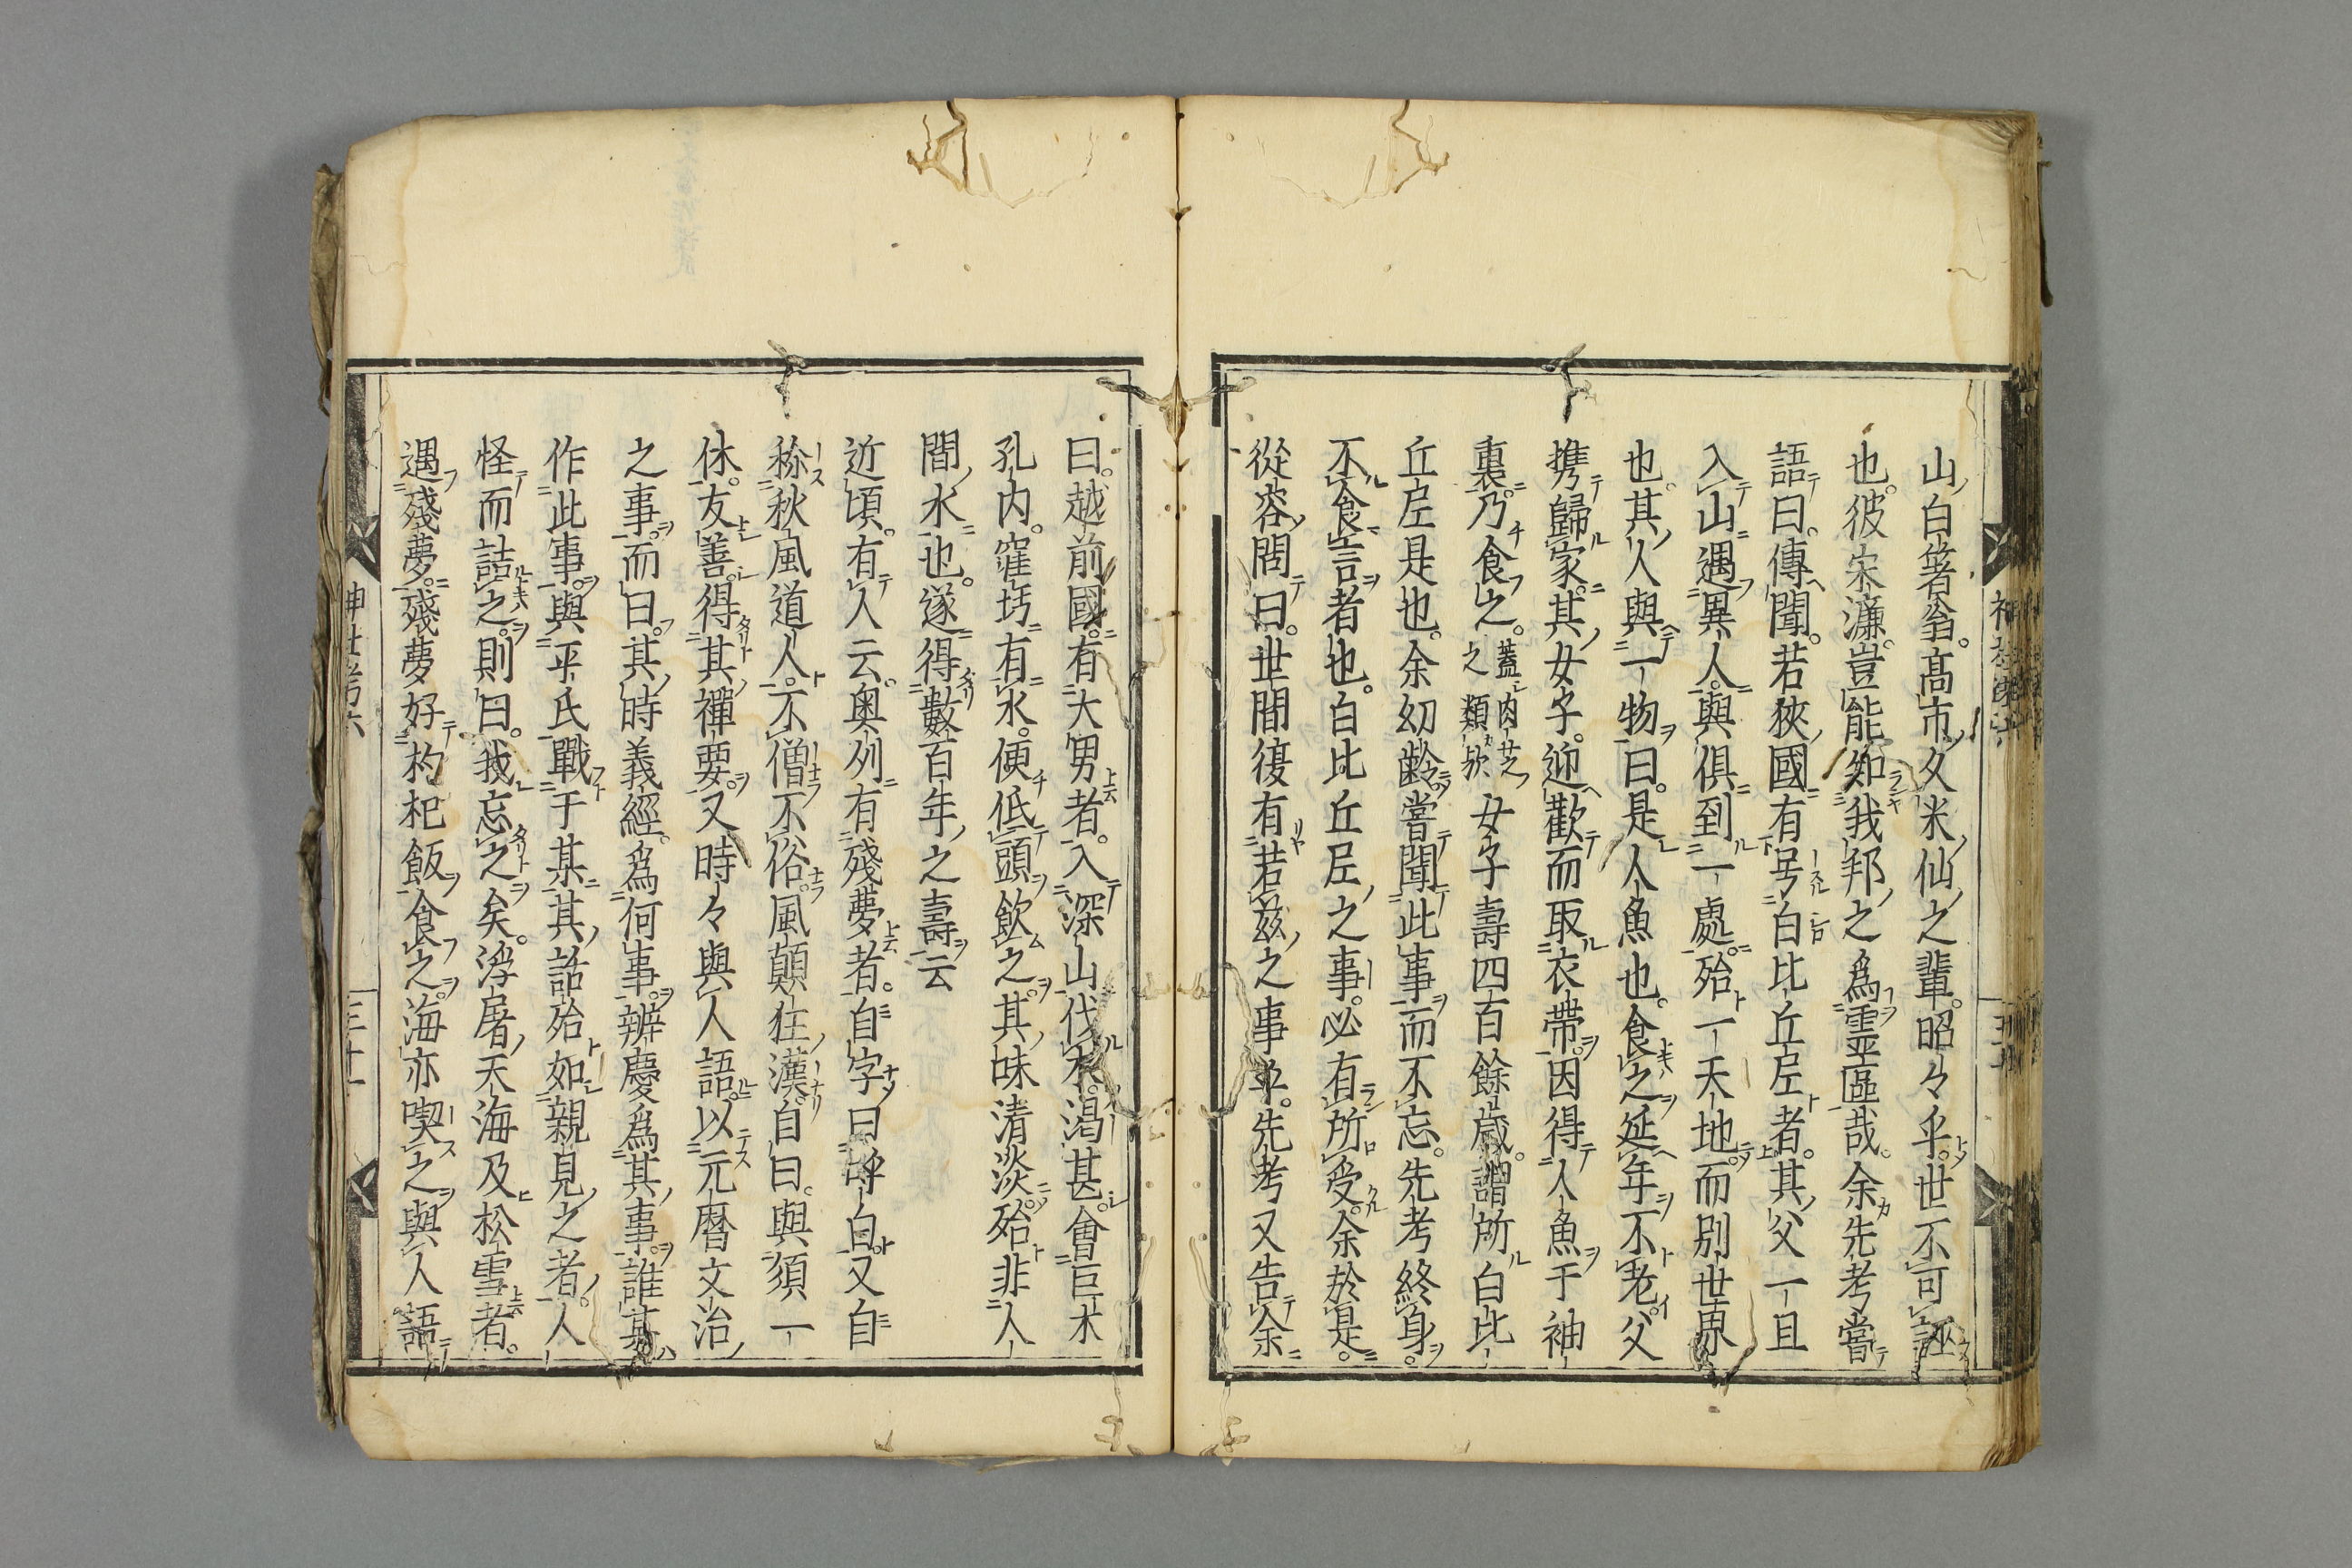 山白箸翁高市久米仙之輩昭々乎世不可誣
也彼宋濂豈能知我邦之爲靈區哉余先考嘗
語曰傳聞若狹國有号白比丘尼者其父一旦
入山遇異人與俱到一處殆一天地而別世界
也其人與一物曰是人魚也食之延年不老父
携歸家其女子迎歡而取衣帶因得人魚于袖
裏乃食之蓋肉芝之類歟女子壽四百餘歲謂所白比
丘尼是也余幼齡嘗聞此事而不忘先考終身
不食言者也白比丘尼之事必有所受余於是
從容問曰世間復有若茲之事乎先考又告余
曰越前國有大男者入深山伐木渴甚會巨木
孔内窪坊有水便低頭飲之其味清淡殆非人
間水也遂得數百年之壽云
近頃有人云奥州有殘夢者自字曰呼白又自
稱秋風道人不僧不俗風顛狂漢自曰與須一
休友善得其禪要又時々與人語以元曆文治
之事而曰其時義經爲何事辨慶爲其事誰某
作此事與平氏戰于某其話殆如親見之者人
怪而詰之則曰我忘之矣浮屠天海及松雪者
遇殘夢殘夢好枸杞飯食之海亦喫之與人語